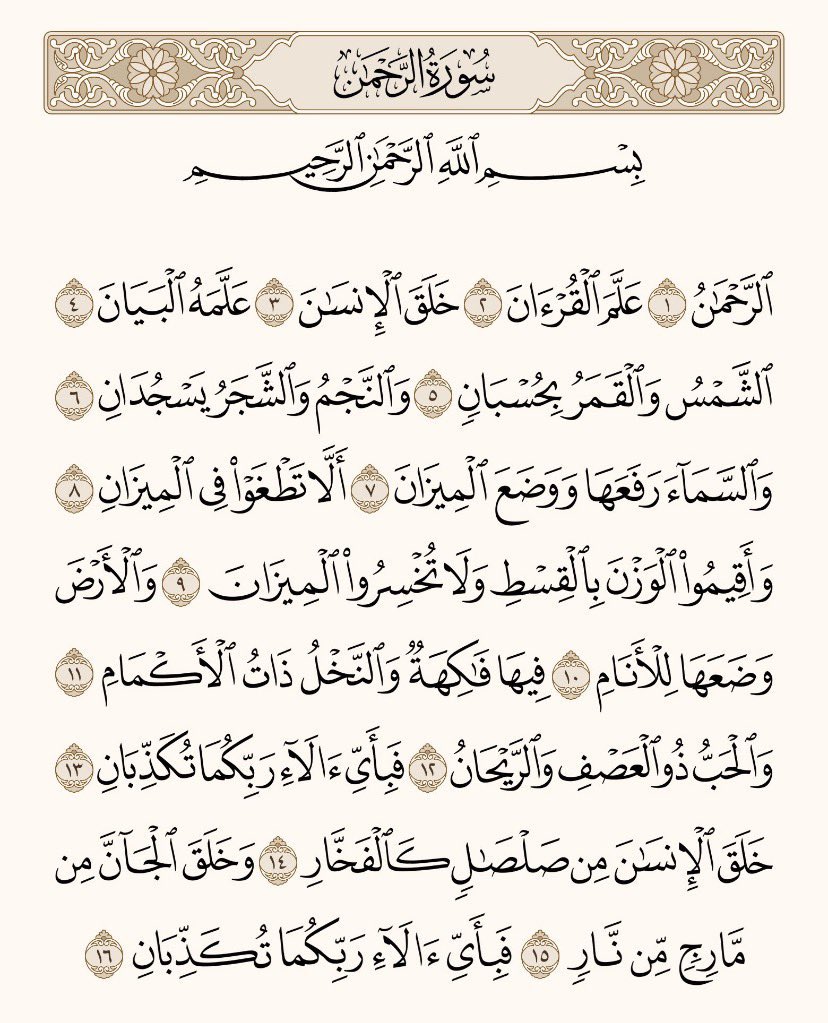 سُورَةُ الرَّحْمَٰن
بِسْمِ ٱللَّهِ ٱلرَّحْمَٰنِ ٱلرَّحِيمِ
ٱلرَّحْمَٰنُ ١ عَلَّمَ ٱلْقُرْءَانَ ٢ خَلَقَ ٱلْإِنسَٰنَ ٣ عَلَّمَهُ ٱلْبَيَانَ ٤
ٱلشَّمْسُ وَٱلْقَمَرُ بِحُسْبَانٍ ٥ وَٱلنَّجْمُ وَٱلشَّجَرُ يَسْجُدَانِ ٦
وَٱلسَّمَآءَ رَفَعَهَا وَوَضَعَ ٱلْمِيزَانَ ٧ أَلَّا تَطْغَوْا۟ فِى ٱلْمِيزَانِ ٨
وَأَقِيمُوا۟ ٱلْوَزْنَ بِٱلْقِسْطِ وَلَا تُخْسِرُوا۟ ٱلْمِيزَانَ ٩ وَٱلْأَرْضَ
وَضَعَهَا لِلْأَنَامِ ١٠ فِيهَا فَٰكِهَةٌ وَٱلنَّخْلُ ذَاتُ ٱلْأَكْمَامِ ١١
وَٱلْحَبُّ ذُو ٱلْعَصْفِ وَٱلرَّيْحَانُ ١٢ فَبِأَىِّ ءَالَآءِ رَبِّكُمَا تُكَذِّبَانِ ١٣
خَلَقَ ٱلْإِنسَٰنَ مِن صَلْصَٰلٍ كَٱلْفَخَّارِ ١٤ وَخَلَقَ ٱلْجَآنَّ مِن
مَّارِجٍ مِّن نَّارٍ ١٥ فَبِأَىِّ ءَالَآءِ رَبِّكُمَا تُكَذِّبَانِ ١٦